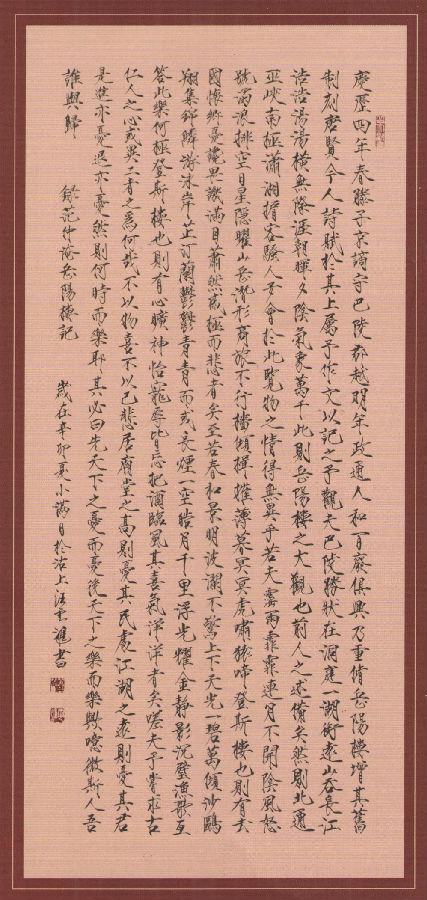 慶歷四年春滕子京謫守巴陵郡越明年政通人和百廢俱興乃重修岳陽樓增其舊
制刻唐賢今人詩賦於其上屬予作文以記之予觀夫巴陵勝狀在洞庭一湖銜遠山吞長江
浩浩湯湯橫無際涯朝暉夕陰氣象萬千此則岳陽樓之大觀也前人之述備矣然則北通
巫峽南極瀟湘遷客騷人多會於此覽物之情得無異乎若夫霪雨霏霏連月不開陰風怒
號濁浪排空日星隱耀山岳潛形商旅不行檣傾楫摧薄暮冥冥虎嘯猿啼登斯樓也則有去
國懷鄉憂讒畏譏滿目蕭然感極而悲者矣至若春和景明波瀾不驚上下天光一碧萬頃沙鷗
翔集錦鱗游泳岸芷汀蘭鬱鬱青青而或長煙一空皓月千里浮光耀金靜影沉璧漁歌互
答此樂何極登斯樓也則有心曠神怡寵辱皆忘把酒臨風其喜氣洋洋者矣嗟夫予嘗求古
仁人之心或異二者之為何哉不以物喜不以己悲居廟堂之高則憂其民處江湖之遠則憂其君
是進亦憂退亦憂然則何時而樂耶其必曰先天下之憂而憂後天下之樂而樂歟噫微斯人吾
誰與歸 錄范仲淹岳陽樓記
歲在辛卯夏小滿日於沽上 書